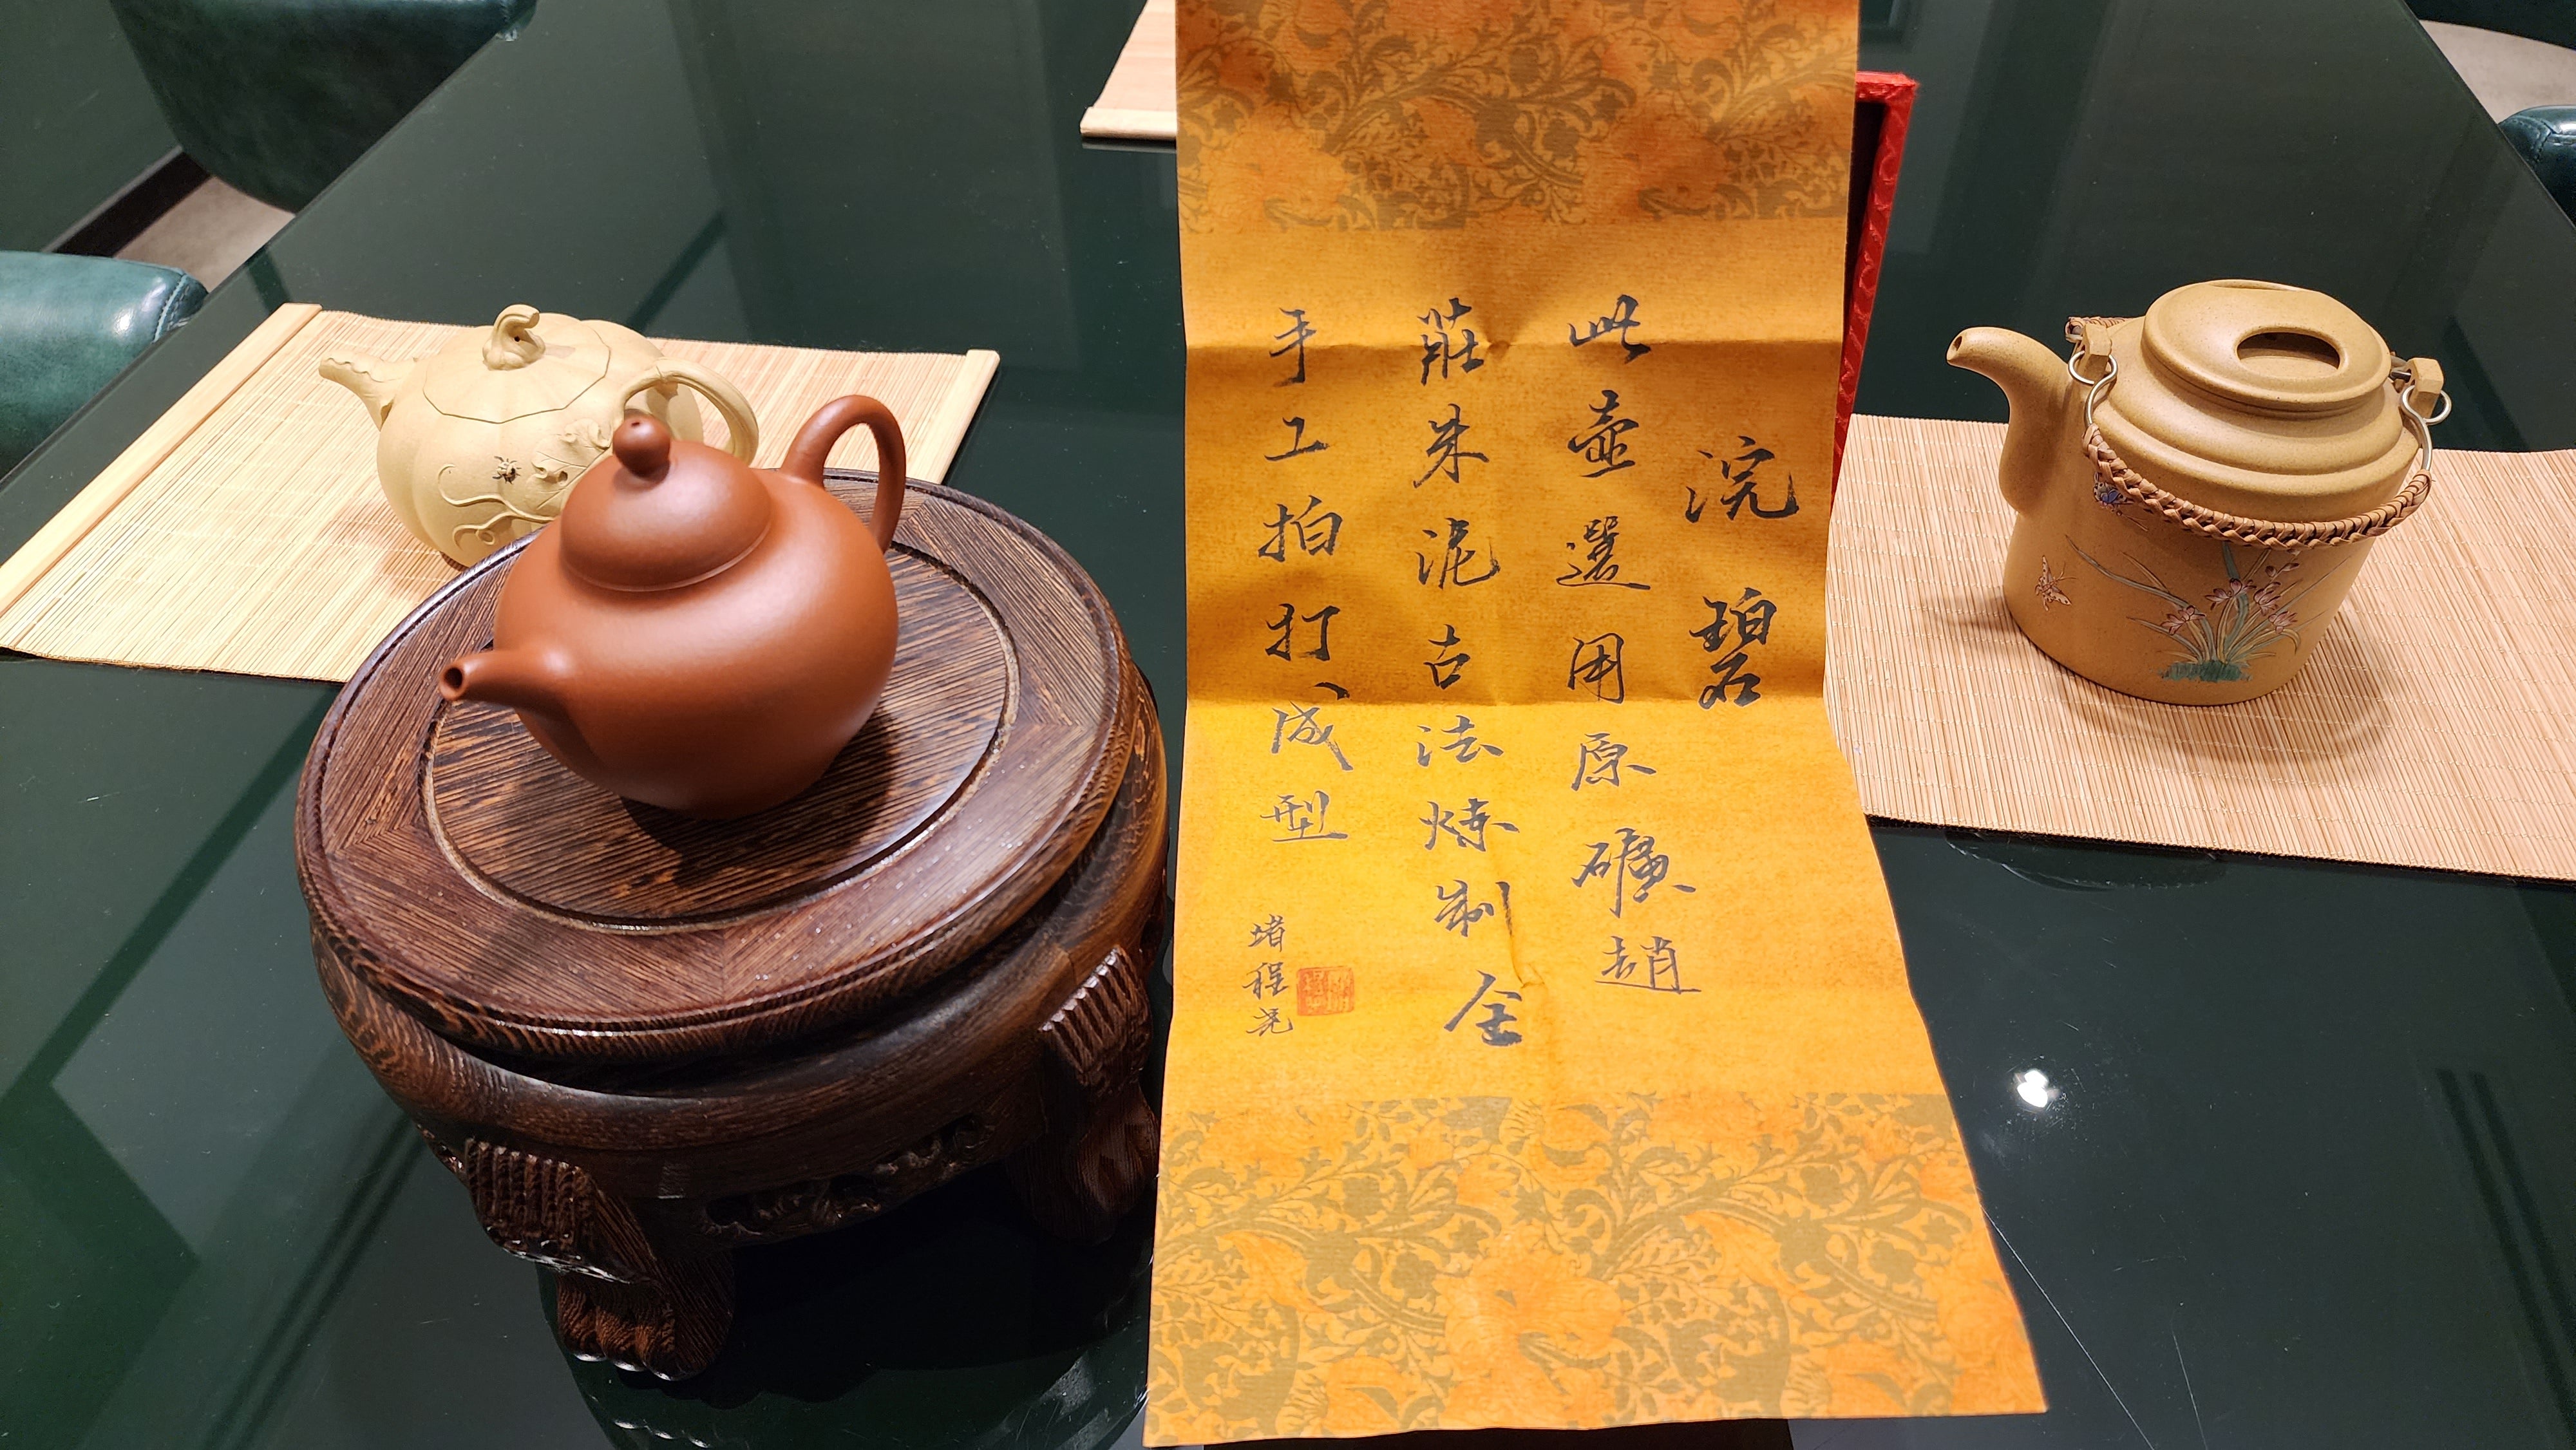 浣碧
此壺選用原礦趙
莊朱泥古法炼制全
手工拍打成型
堵程尧